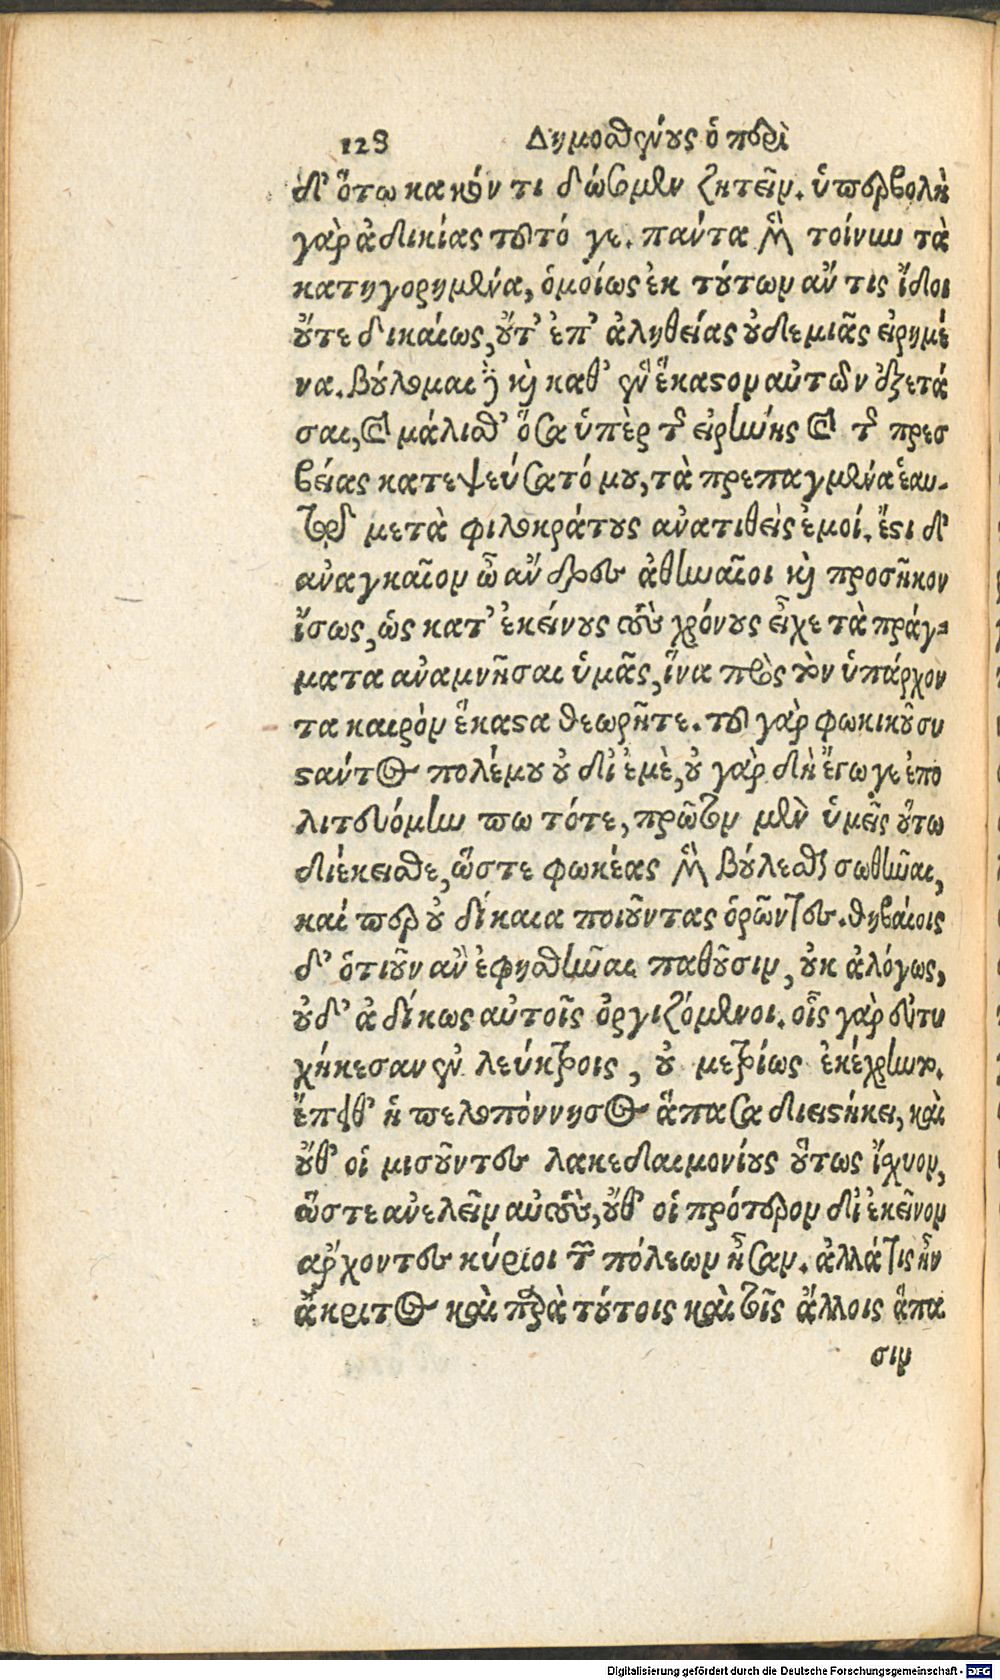 128 Δημοσθένους ὁ περὶ
δἰ ὅτω κακόν τι δώσομεν ζητεῖν. ὑπερβολὴ
γὰρ ἀδικίας τοῦτό γε. πάντα μὲν τοίνυν τὰ
κατηγορημένα, ὁμοίως ἐκ τούτων ἄν τις ἴδοι
οὔτε δικαίως, οὔτ' ἐπ' ἀληθείας οὐδεμιᾶς εἰρημέ
να. βούλομαι δὲ καὶ καθ' ἓν ἕκαστον αὐτῶν ἐξετά
σαι, καὶ μάλισθ' ὅσα ὑπὲρ τῆς εἰρήνης καὶ τῆς πρεσ
βείας κατεψεύσατό μου, τὰ πεπραγμένα ἑαυ-
τῷ μετὰ φιλοκράτους ἀνατιθεὶς ἐμοί. ἔστι δ'
ἀναγκαῖον ὦ ἄνδρες ἀθηναῖοι καὶ προσῆκον
ἴσως, ὡς κατ' ἐκείνους τοὺς χρόνους εἶχε τὰ πράγ-
ματα ἀναμνῆσαι ὑμᾶς, ἵνα πρὸς τὸν ὑπάρχον
τα καιρὸν ἕκαστα θεωρῆτε. τοῦ γὰρ φωκικοῦ συ
στάντος πολέμου οὐ δἰ ἐμὲ, οὐ γὰρ δὴ ἔγωγε ἐπο
λιτευόμην πω τότε, πρῶτον μὲν ὑμεῖς οὕτω
διέκεισθε, ὥστε φωκέας μὲν βούλεσθαι σωθῆναι,
καί περ οὐ δίκαια ποιοῦντας ὁρῶντες. θηβαίοις
δ' ὁτιοῦν ἂν ἐφησθῆναι παθοῦσιν, οὐκ ἀλόγως,
οὐδ' ἀδίκως αὐτοῖς ὀργιζόμενοι. οἷς γὰρ εὐτυ
χήκεσαν ἐν λεύκτροις, οὐ μετρίως ἐκέχρηντο.
ἔπειθ' ἡ πελοπόννησος ἅπασα διειστήκει, καὶ
οὔθ' οἱ μισοῦντες λακεδαιμονίους οὕτως ἴσχυον,
ὥστε ἀνελεῖν αὐτοὺς, οὔθ' οἱ πρότερον δἰ ἐκεῖνον
ἄρχοντες κύριοι τῶν πόλεων ἦσαν. ἀλλά τις ἦν
ἄκριτος καὶ παρὰ τούτοις καὶ τοῖς ἄλλοις ἅπα
σιν
Digitalisierung gefördert durch die Deutsche Forschungsgemeinschaft - DFG